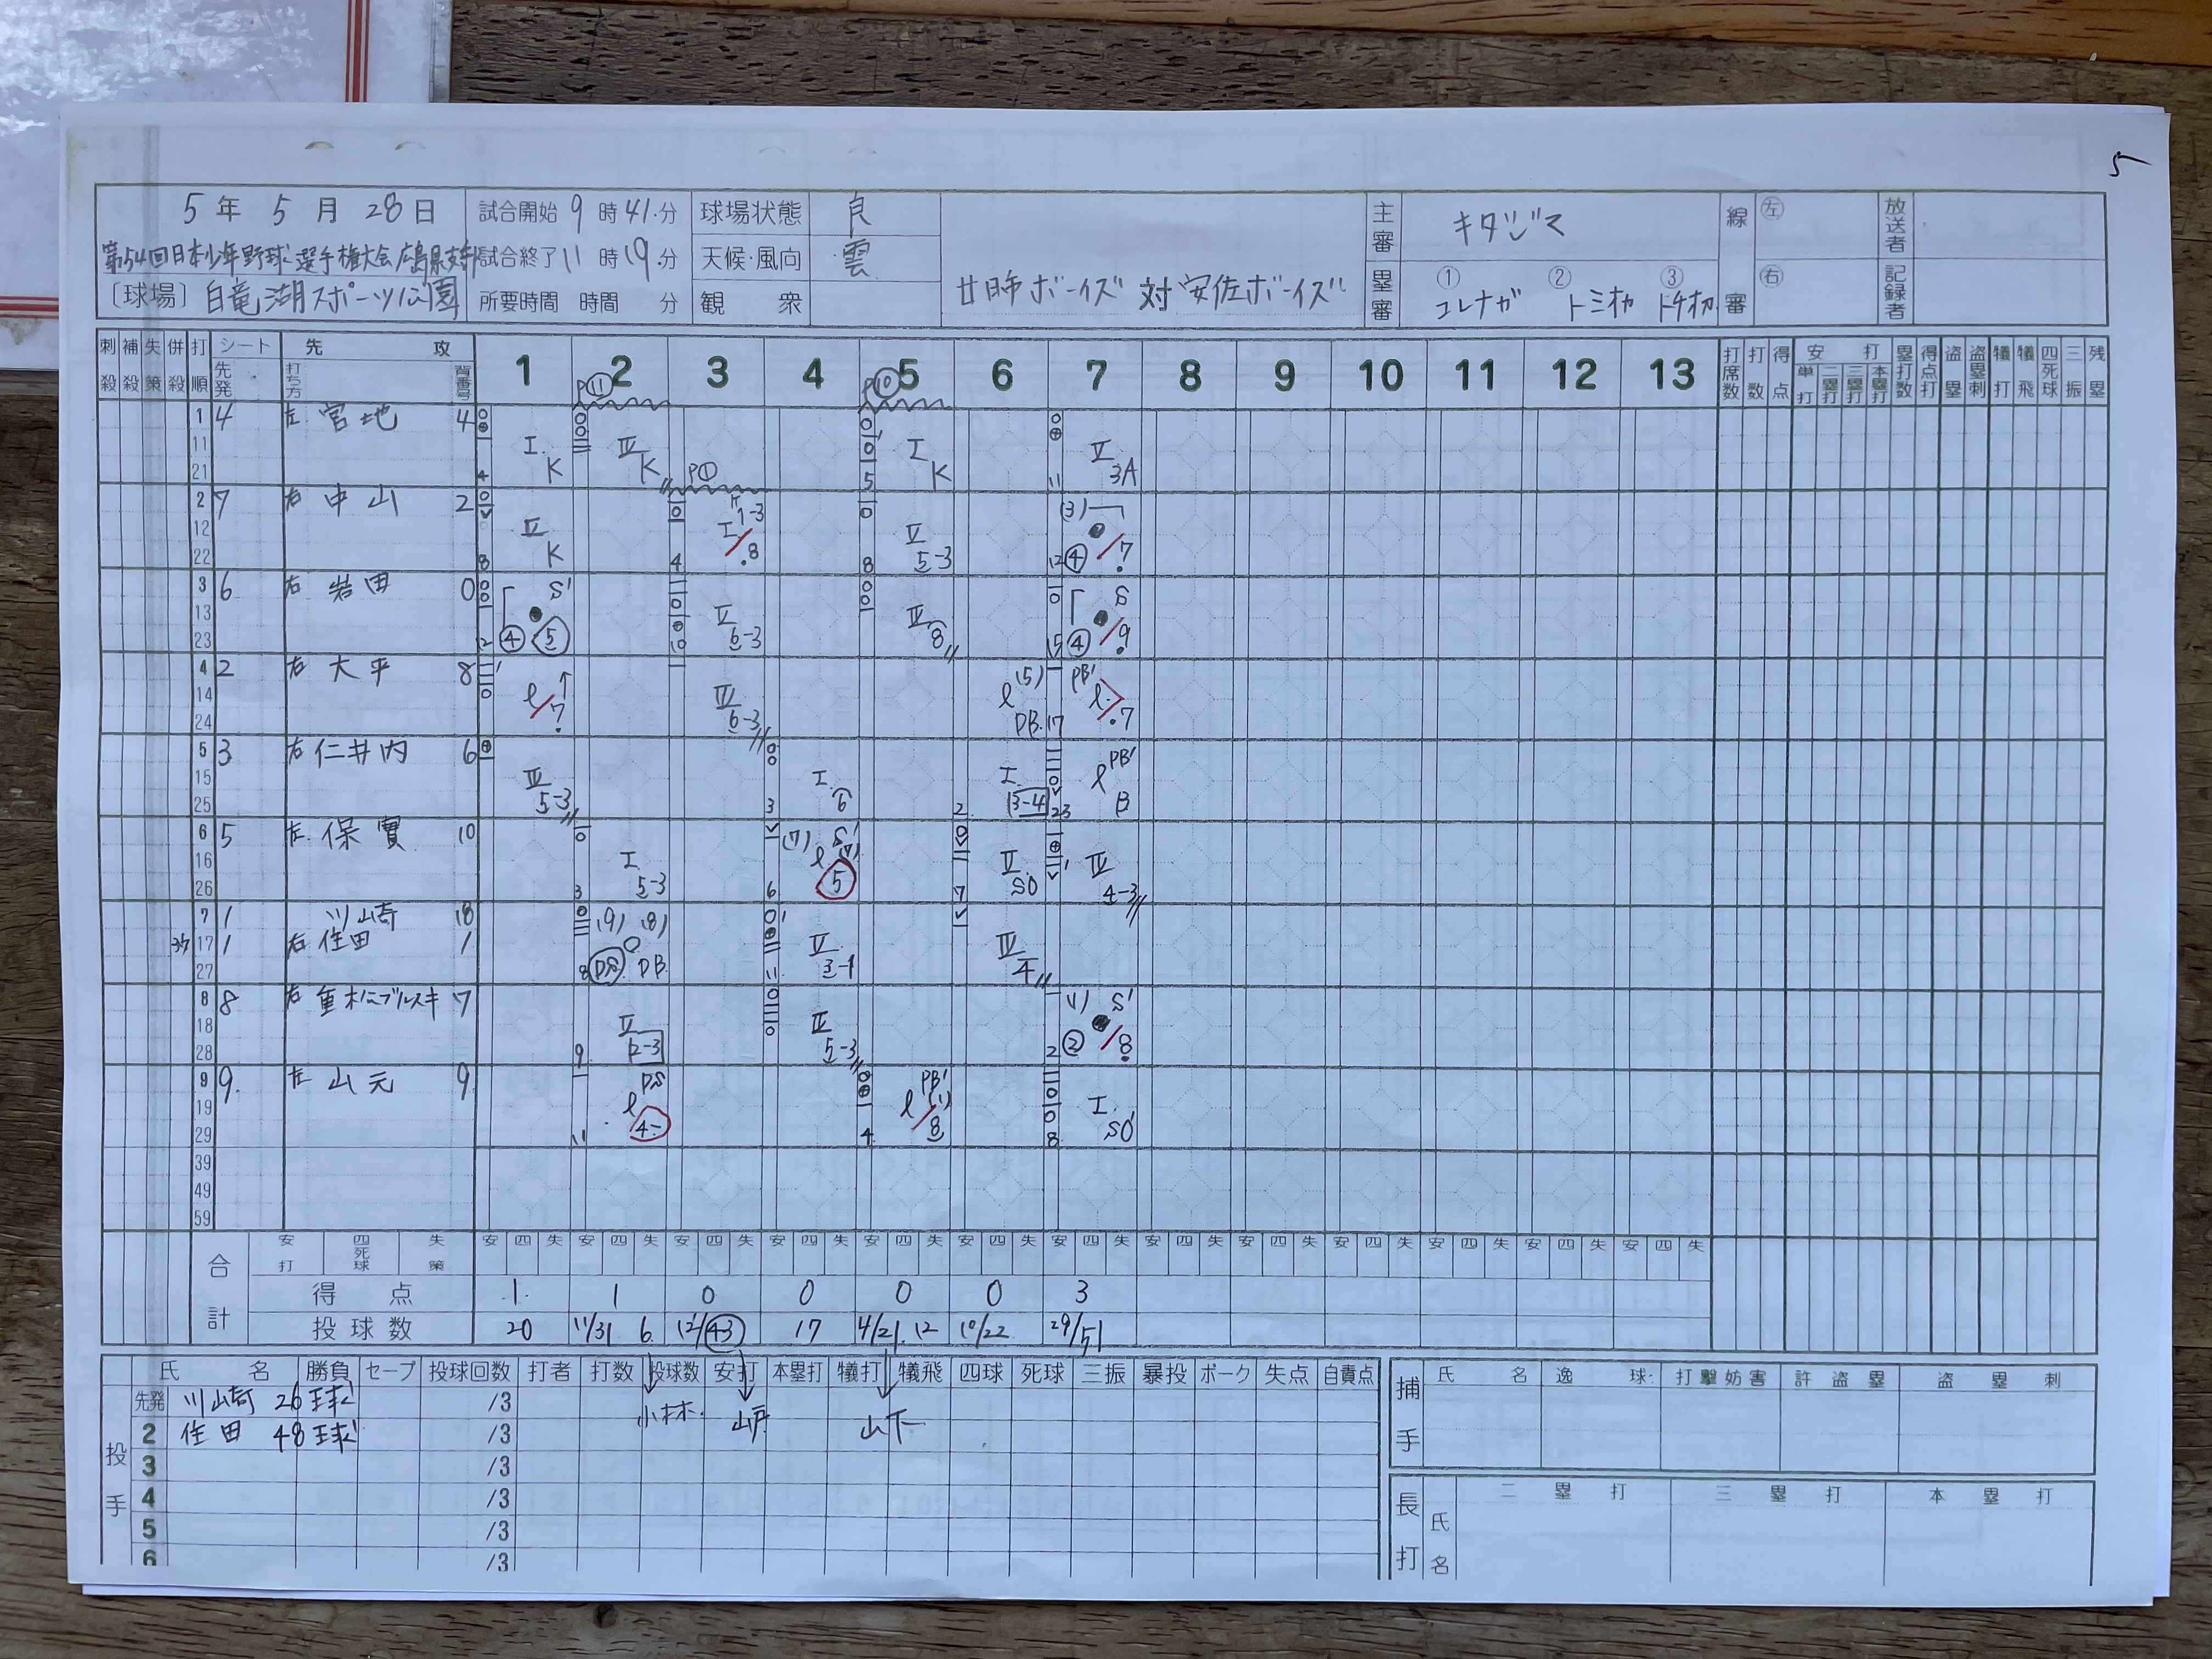 5
5年 5月 28日
試合開始 9時41分
球場状態 良
主審 キタジマ
線審 左 右
放送者
第54回日本少年野球選手権大会広島県支部
試合終了 11時19分
天候・風向 雲
廿日市ボーイズ 対 安佐ボーイズ
塁審 ① コレナガ ② トミオカ ③ トチオカ
記録者
〔球場〕白竜湖スポーツ公園
所要時間 時間 分
観衆
刺殺 補殺 失策 併殺 打順 シート 先発 先攻 打ち方 背番号 1 2 3 4 5 6 7 8 9 10 11 12 13 打席数 打数 得点 安打 単打 二塁打 三塁打 本塁打 塁打数 得点打 盗塁 盗塁刺 犠打 犠飛 四死球 三振 残塁
P⑪ P⑩
1 11 21 4 左 宮地 4
I K IV K I K V 3A
P①
2 12 22 7 右 中山 2
II K 8 5-3 7
3 13 23 6 右 岩田 0
S' ④ 5 6-3 8 S ④ 9
4 14 24 2 右 大平 8
l 7 6-3 l (5) DB PB' l 7
5 15 25 3 右 仁井内 6
5-3 I 6 I 3-4 PB' l B
6 16 26 5 左 保實 10
I 5-3 (7) S' l 5 II SO 4-3
7 1 川崎 18
17 27 1 右 住田 1
(9) (8) DS DB 3-1 4
8 18 28 8 右 重松ニブルスキ 7
II 2-3 5-3 S' ② 8
9 19 29 9 左 山元 9
DS l 4- PB' l 8 I SO'
39
49
59
合計 安打 四死球 失策
安 四 失 安 四 失 安 四 失 安 四 失 安 四 失 安 四 失 安 四 失 安 四 失 安 四 失 安 四 失 安 四 失 安 四 失 安 四 失
得点 1 1 0 0 0 0 3
投球数 20 11/31 6 12/43 17 4/21 12 10/22 29/51
投手 氏名 勝負 セーブ 投球回数 打者 打数 投球数 安打 本塁打 犠打 犠飛 四球 死球 三振 暴投 ボーク 失点 自責点
先発 川崎 26球 /3
小林 山戸 山下
2 住田 48球 /3
3 /3
4 /3
5 /3
6 /3
捕手 氏名 逸球 打撃妨害 許盗塁 盗塁刺
長打 氏名 二塁打 三塁打 本塁打